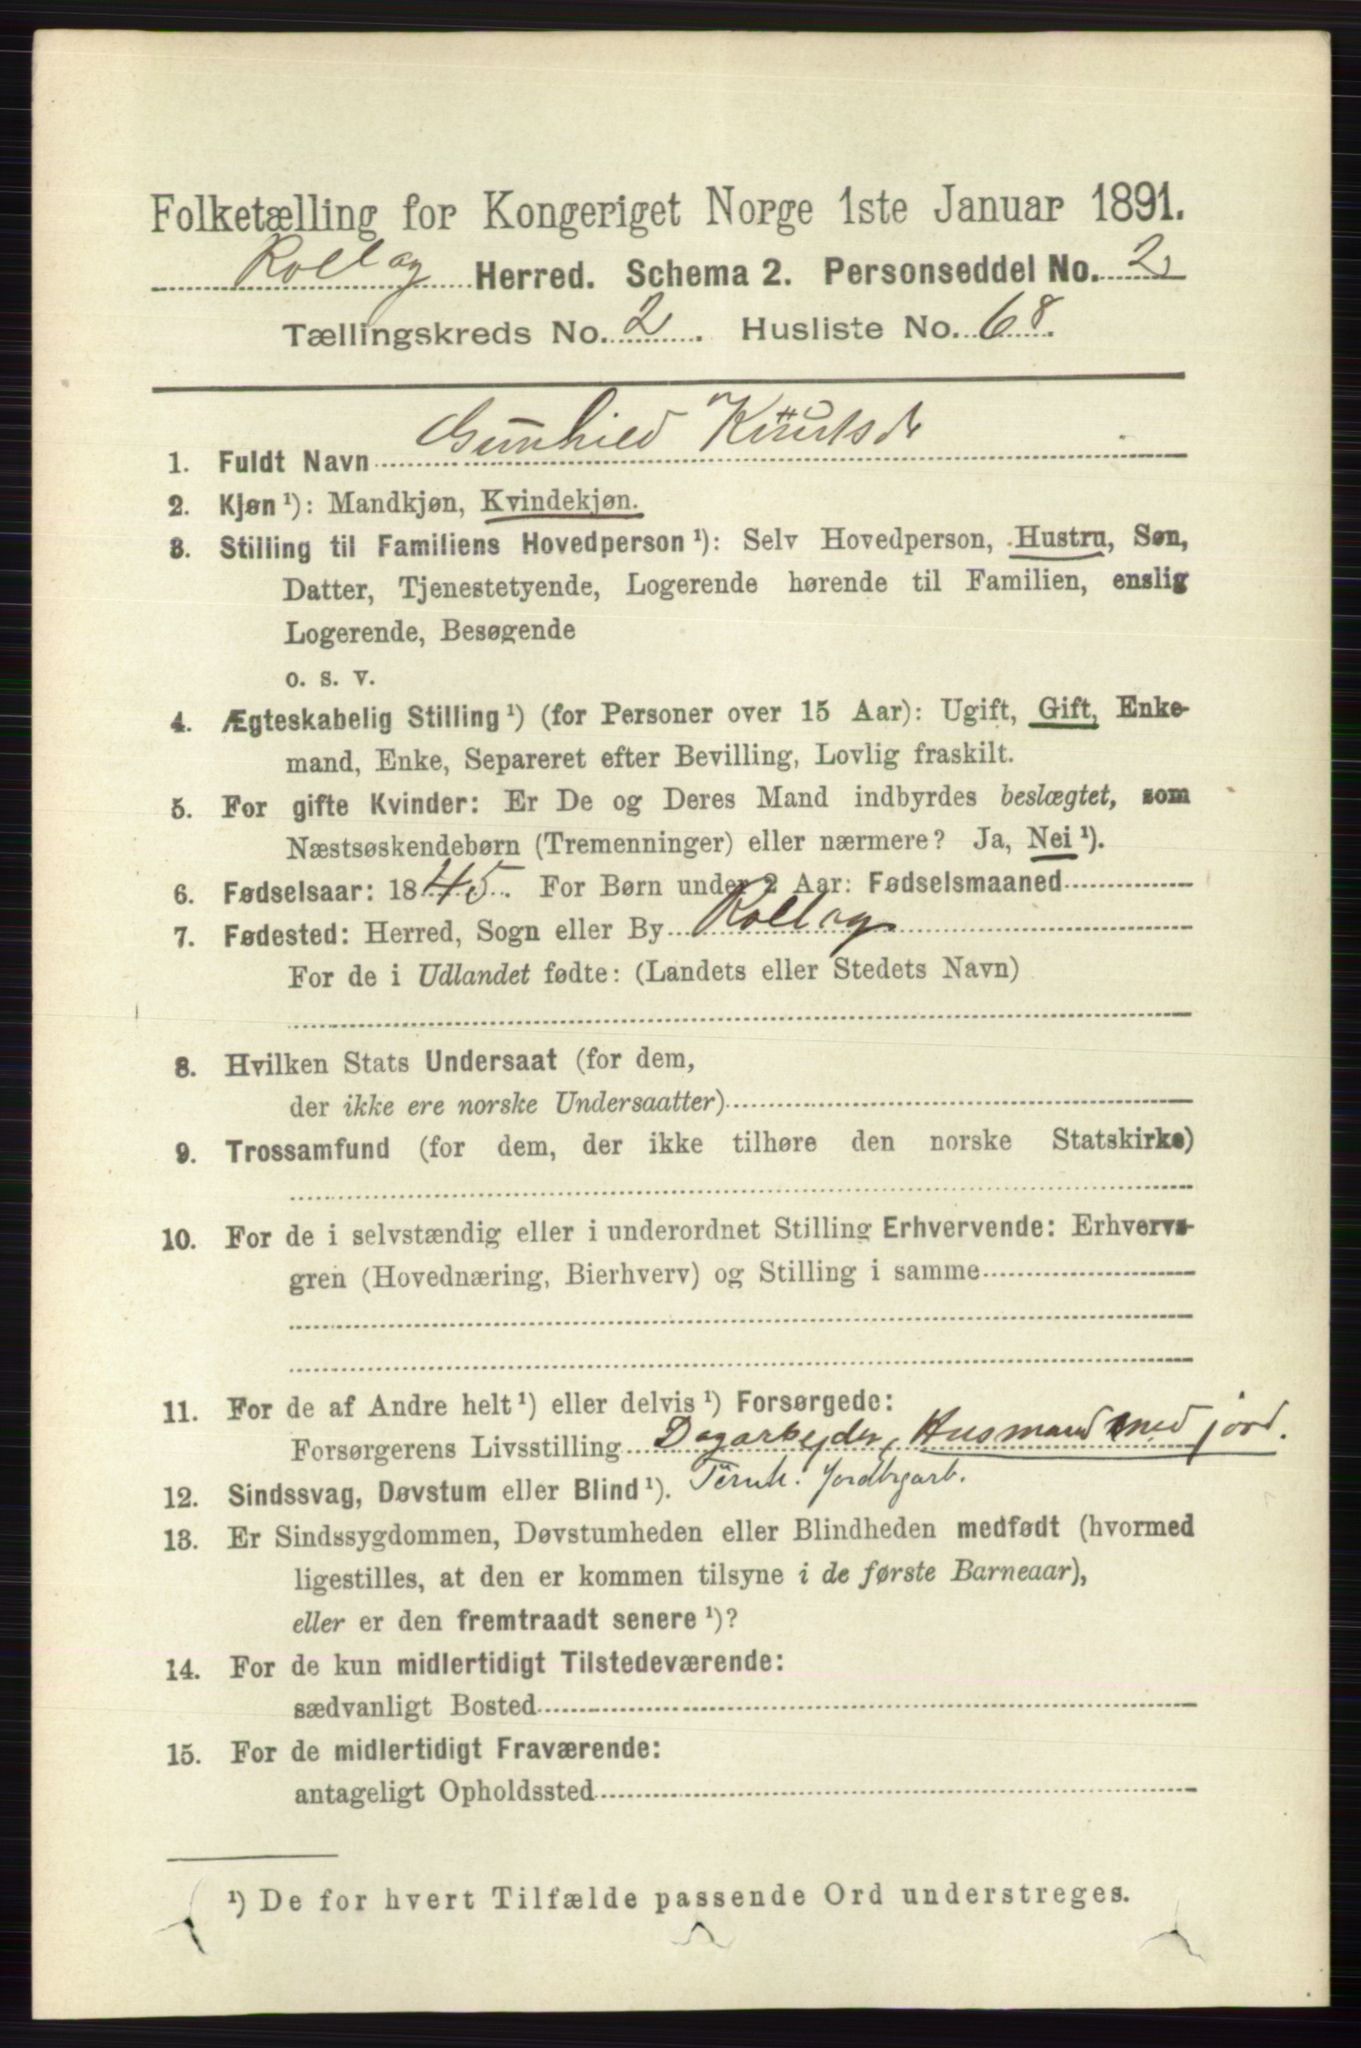 Folketælling for Kongeriget Norge 1ste Januar 1891.
Rollag Herred. Schema 2. Personseddel No. 2
Tællingskreds No. 2. Husliste No. 68.
1. Fuldt Navn Gunhild Knutsd
2. Kjøn¹): Mandkjøn, Kvindekjøn.
3. Stilling til Familiens Hovedperson¹): Selv Hovedperson, Hustru, Søn,
Datter, Tjenestetyende, Logerende hørende til Familien, enslig
Logerende, Besøgende
o. s. v.
4. Ægteskabelig Stilling¹) (for Personer over 15 Aar): Ugift, Gift, Enke-
mand, Enke, Separeret efter Bevilling, Lovlig fraskilt.
5. For gifte Kvinder: Er De og Deres Mand indbyrdes beslægtet, som
Næstsøskendebørn (Tremenninger) eller nærmere? Ja, Nei¹).
6. Fødselsaar: 1845. For Børn under 2 Aar: Fødselsmaaned
7. Fødested: Herred, Sogn eller By Rollag
For de i Udlandet fødte: (Landets eller Stedets Navn)
8. Hvilken Stats Undersaat (for dem,
der ikke ere norske Undersaatter)
9. Trossamfund (for dem, der ikke tilhøre den norske Statskirke)
10. For de i selvstændig eller i underordnet Stilling Erhvervende: Erhvervs-
gren (Hovednæring, Bierhverv) og Stilling i samme
11. For de af Andre helt¹) eller delvis¹) Forsørgede:
Forsørgerens Livsstilling Dagarbejder, Husmand med jord.
12. Sindssvag, Døvstum eller Blind¹). Jordbrgarb.
13. Er Sindssygdommen, Døvstumheden eller Blindheden medfødt (hvormed
ligestilles, at den er kommen tilsyne i de første Barneaar),
eller er den fremtraadt senere¹)?
14. For de kun midlertidigt Tilstedeværende:
sædvanligt Bosted
15. For de midlertidigt Fraværende:
antageligt Opholdssted
¹) De for hvert Tilfælde passende Ord understreges.